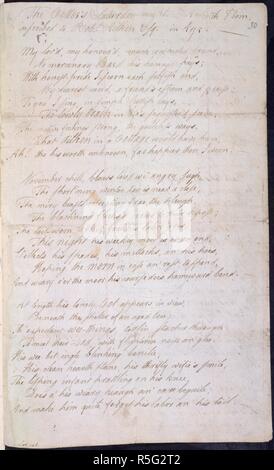 The Cotter's Saturday night
inscribed to Robt. Aitken Esq.
30
My lov'd, my honor'd, much respected friend,
No mercenary Bard his homage pays;
With honest pride I scorn each selfish end,
My dearest meed, a friend's esteem and praise:
To you I sing, in simple Scottish lays,
The lowly train in life's sequester'd scene,
The native feelings strong, the guileless ways,
What Aitken in a Cottage would have been,
Ah! tho his worth unknown, far happier there I ween.
November chill blaws loud wi' angry sugh,
The short'ning winter day is near a close,
The miry beasts retreating frae the pleugh,
The black'ning
The toil-worn
This night his weekly moil is at an end,
Collects his spades, his mattocks, and his hoes,
Hoping the morn in ease and rest to spend,
And weary o'er the moor his course does hameward bend.
At length his lonely Cot appears in view,
Beneath the shelter of an aged tree;
Th' expectant wee-things, toddlin, stacher through
To meet their Dad, wi' flichterin noise an' glee.
His wee bit ingle blinking bonilie,
His clean hearth-stane, his thrifty wifie's smile,
The lisping infant prattling on his knee,
Does a' his weary
And makes him quite forget his labor an' his toil.
R5G2T2